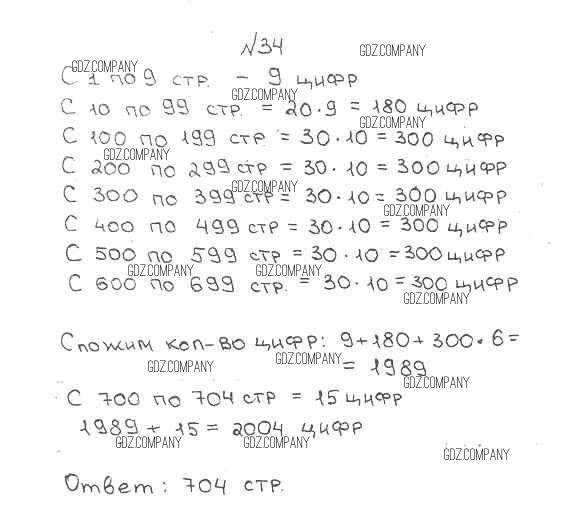 №34
GDZ.COMPANY
GDZ.COMPANY
С 1 по 9 стр. - 9 цифр
GDZ.COMPANY
С 10 по 99 стр. = 20·9 = 180 цифр
GDZ.COMPANY
С 100 по 199 стр = 30·10 = 300 цифр
GDZ.COMPANY
С 200 по 299 стр = 30·10 = 300 цифр
GDZ.COMPANY
С 300 по 399 стр = 30·10 = 300 цифр
GDZ.COMPANY
С 400 по 499 стр = 30·10 = 300 цифр
С 500 по 599 стр = 30·10 = 300 цифр
GDZ.COMPANY GDZ.COMPANY
С 600 по 699 стр. = 30·10 = 300 цифр
GDZ.COMPANY
Сложим кол-во цифр: 9+180+300·6=
GDZ.COMPANY GDZ.COMPANY
= 1989
GDZ.COMPANY
С 700 по 704 стр = 15 цифр
1989 + 15 = 2004 цифр
GDZ.COMPANY GDZ.COMPANY
GDZ.COMPANY
Ответ: 704 стр.